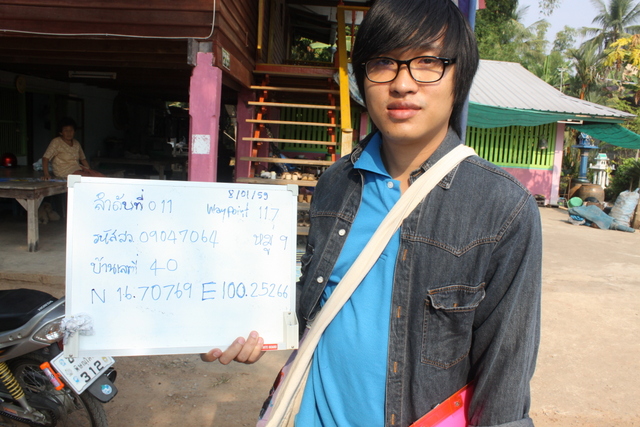 8/01/59
ลำดับที่ 011 Waypoint 117
รหัสสว 09047064 หมู่ 9
บ้านเลขที่ 40
N 16.70769 E 100.25266
312